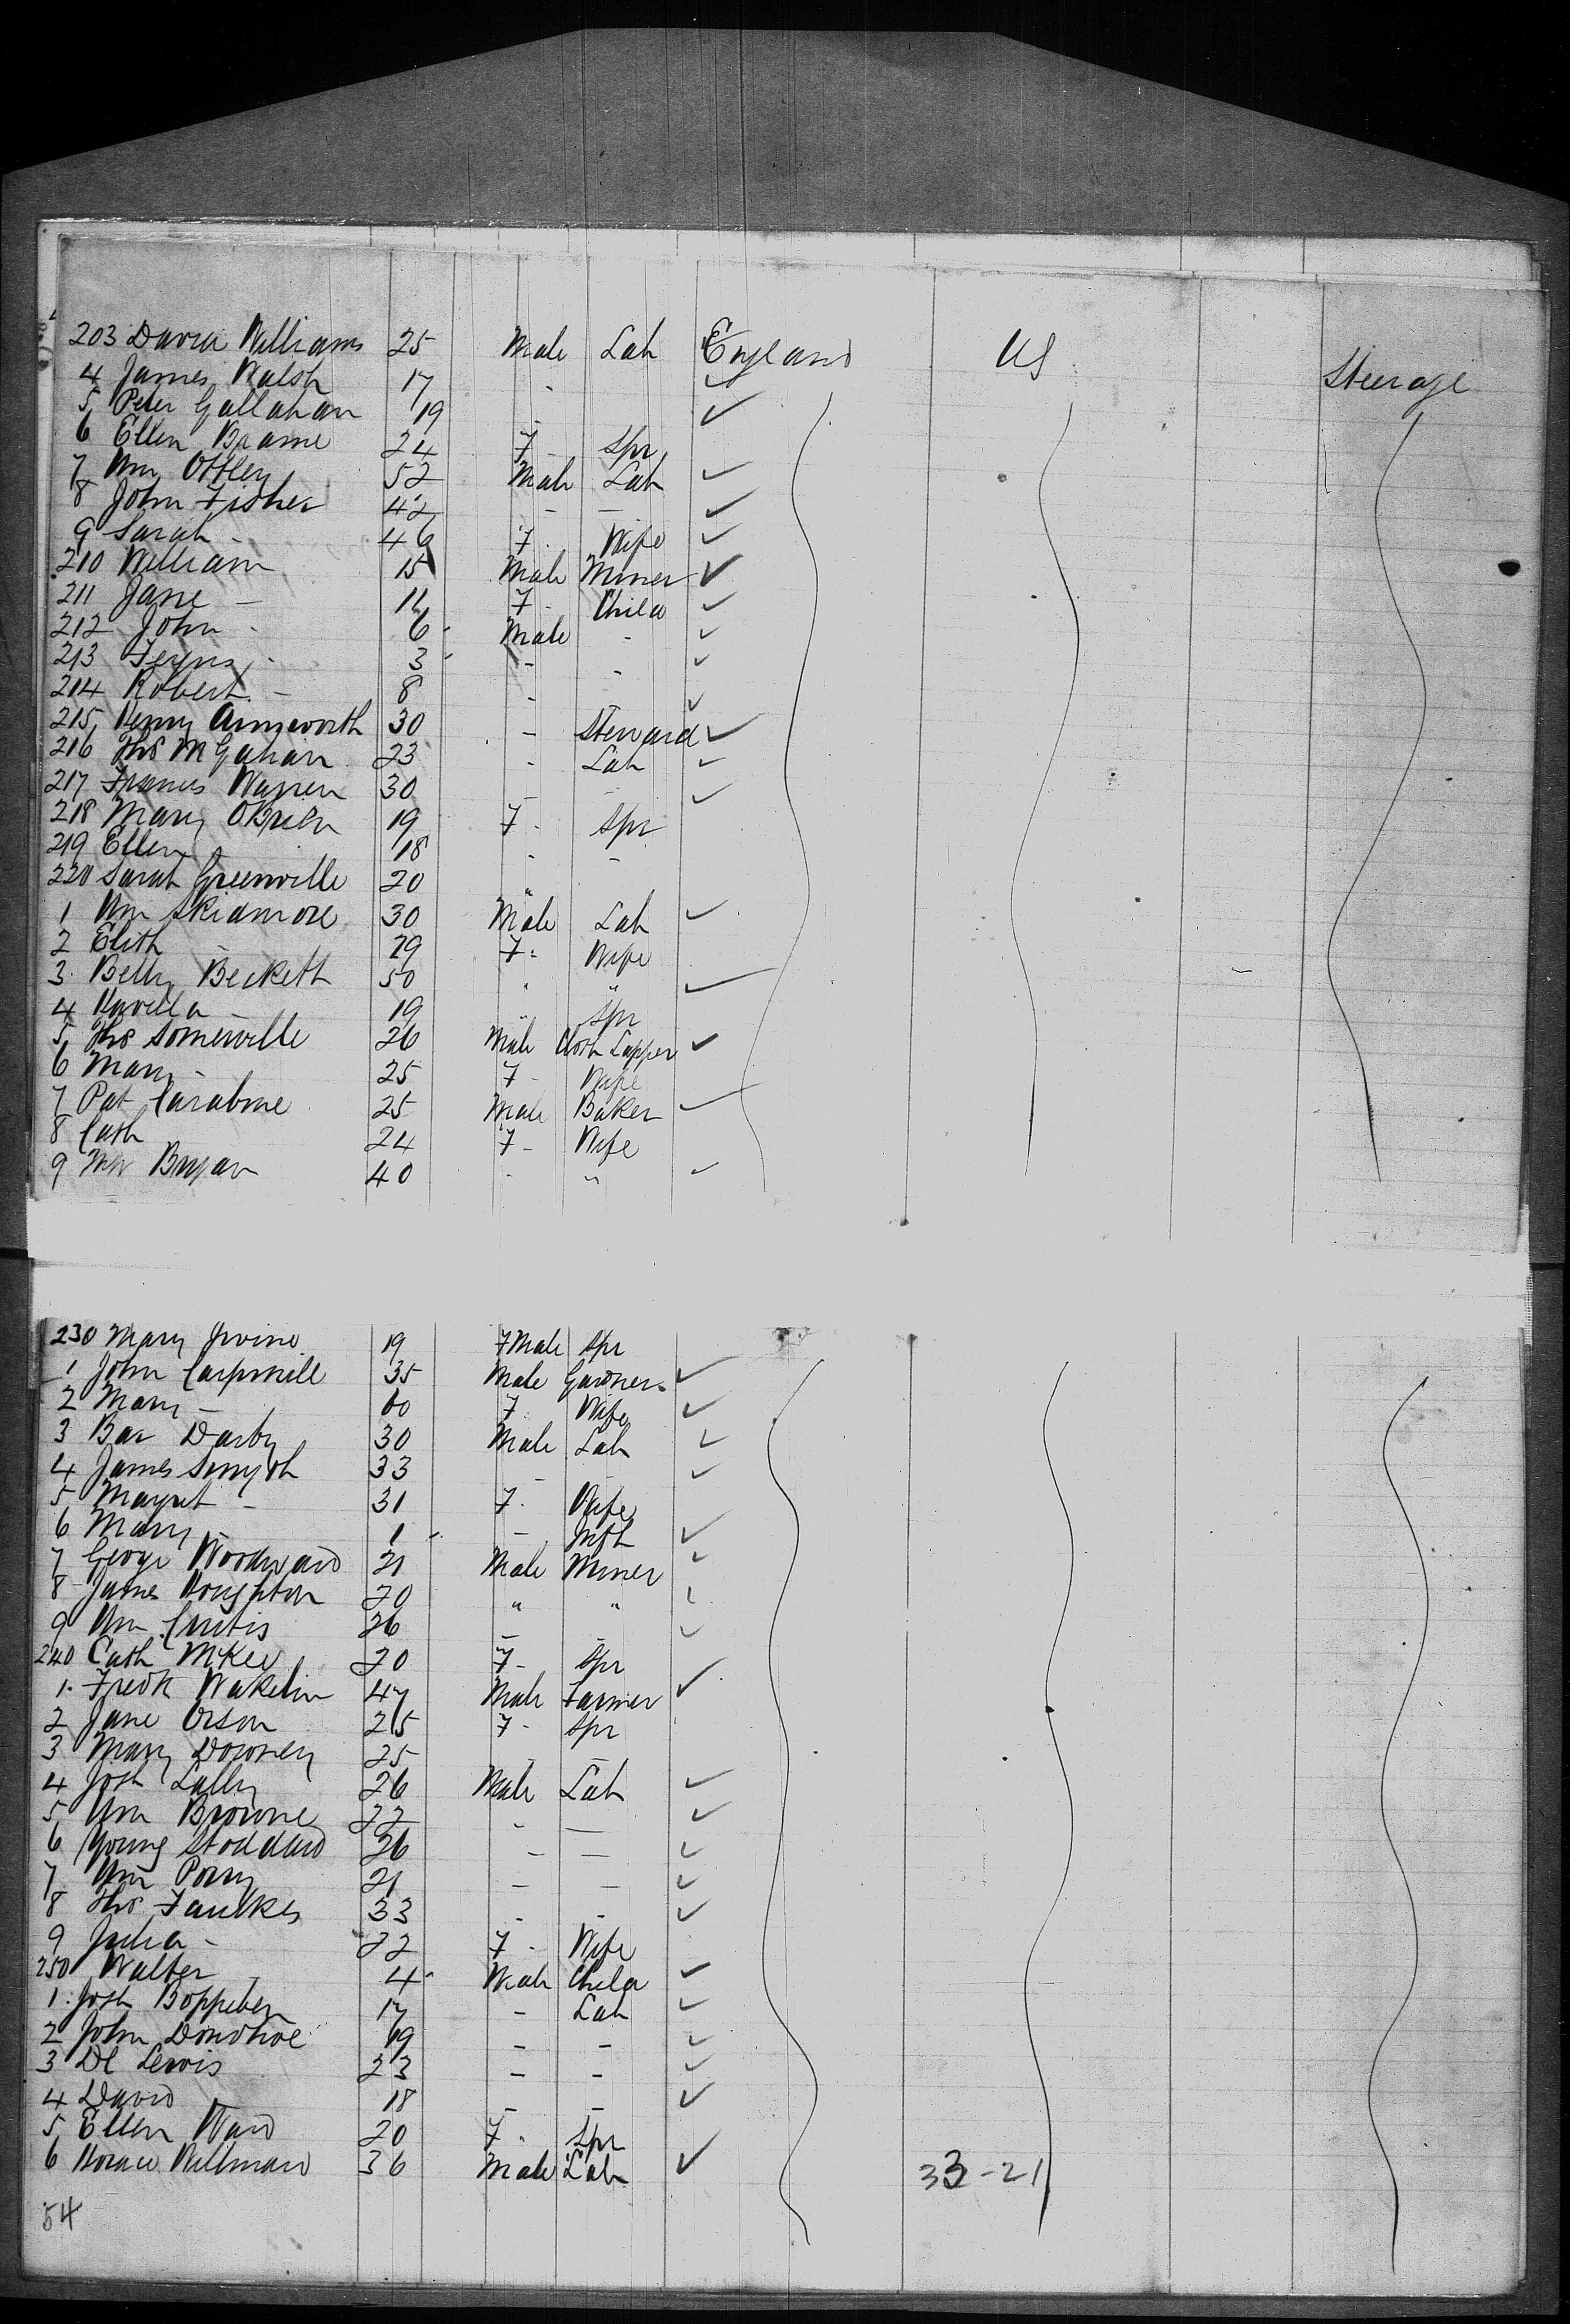 203 David Williams 25 Male Lab England US Steerage
4 James Walsh 17 -
5 Peter Gallahan 19 -
6 Ellen Brame 24 F - Spr
7 Wm Ottley 52 Male Lab
8 John Fisher 42 - -
9 Sarah - 46 F. Wife
210 William 15 Male Miner
211 Jane - 11 F - Child
212 John - 6 Male -
213 Fergus - 3 - -
214 Robert - 8 -
215 Henry Ainsworth 30 - Steward
216 Thos McGahan 23 - Lab
217 Francis Warren 30 - -
218 Mary OBrien 19 F - Spr
219 Ellen - 18 - -
220 Sarah Greenville 20 "
1 Wm Skidmore 30 Male Lab
2 Elith - 29 F - Wife
3 Betty Beckett 50 " "
4 - 19 " Spr
5 Thos Somerville 26 Male Cloth Lapper
6 Mary - 25 F - Wife
7 Pat Carabine 25 Male Baker
8 Cath 24 F - Wife
9 Mrs Bryan 40 - "
230 Mary Irvine 19 FMale Spr
1 John 35 Male Gardner
2 Mary - 60 F Wife
3 Bar Darby 30 Male Lab
4 James Smyth 33 - -
5 Margret - 31 F. Wife
6 Mary - 1 - Inft
7 George Woodward 21 Male Miner
8 James Houghton 20 " "
9 Wm Curtis 26 - -
240 Cath McKee 20 F - Spr
1 Fredk Wakelin 47 Male Farmer
2 Jane Orson 25 F - Spr
3 Mary Downey 25 - -
4 Josh Lally 26 Male Lab
5 Wm Browne 22 - -
6 Young Stoddard 26 - -
7 Wm Parry 21 - -
8 Thos Faulkes 33 - -
9 Julia - 22 F - Wife
250 Walter - 4 Male Child
1 Josh 17 - Lab
2 John Donohoe 19 - -
3 Dl Lewis 23 - -
4 David - 18 - -
5 Ellen Ward 20 F. Spr
6 Horace Willmard 36 Male Lab 33-21
54